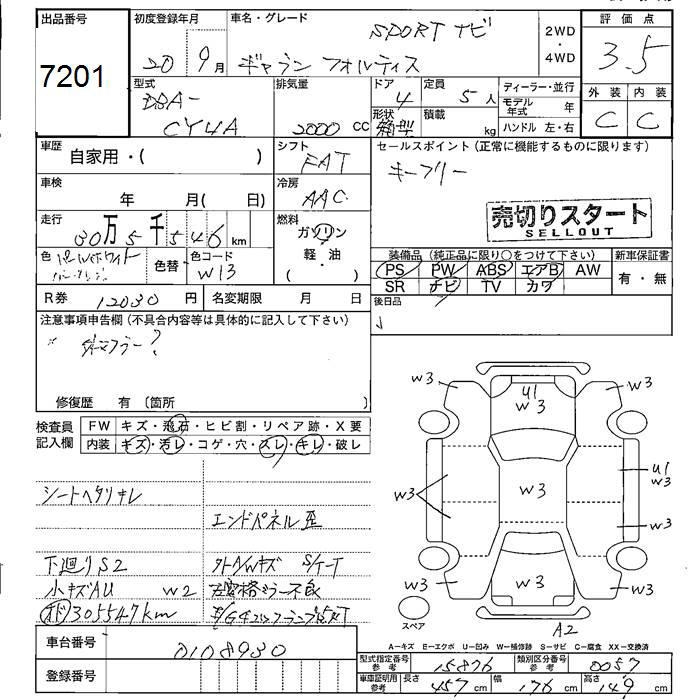 出品番号
7201
初度登録年月
20 9月
車名・グレード
SPORT ナビ
ギャラン フォルティス
2WD
・
4WD
評価点
3.5
外装 内装
C C
型式
DBA-
CY4A
排気量
2000 cc
ドア
4
形状
箱型
定員
5人
積載
kg
ディーラー・並行
モデル年式 年
ハンドル 左・右
車歴
自家用・( )
シフト
FAT
車検
年 月( 日)
冷房
AAC
セールスポイント(正常に機能するものに限ります)
キーフリー
売切りスタート
SELLOUT
走行
30万5千546 km
燃料
ガソリン
軽・油
・
色
色替
色コード
W13
装備品(純正品に限り○をつけて下さい)
PS PW ABS エアB AW
SR ナビ TV カワ
新車保証書
有・無
R券 12030 円
名変期限 月 日
後日品
注意事項申告欄(不具合内容等は具体的に記入して下さい)
修復歴 有 (箇所 )
検査員記入欄
FW キズ・飛石・ヒビ割・リペア跡・X要
内装 キズ・汚レ・コゲ・穴・スレ・キレ・破レ
シートヘタリキレ
エンドパネル歪
下廻りS2
外A/Wキズ S/ケーT
小キズAU W2
305547km
車台番号
0108930
登録番号
W3
U1
W3
W3
W3
W3
W3
U1
W3
W3
W3
W3
W3
スペア
A2
A-キズ E-エクボ U-凹み W-補修跡 S-サビ C-腐食 XX-交換済
型式指定番号参考 15876
類別区分番号参考 0057
車庫証明用参考 長さ 457cm 幅 176cm 高さ 149cm